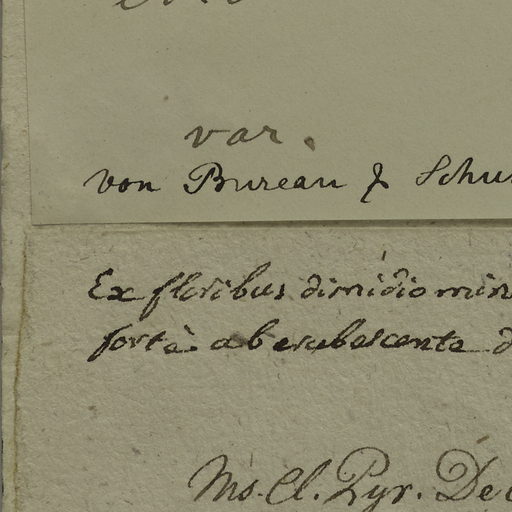 var.
von Bureau & Schu
Ex floribus dimidio min
fortè ab erubescente d
Ms. Cl. Pyr. De